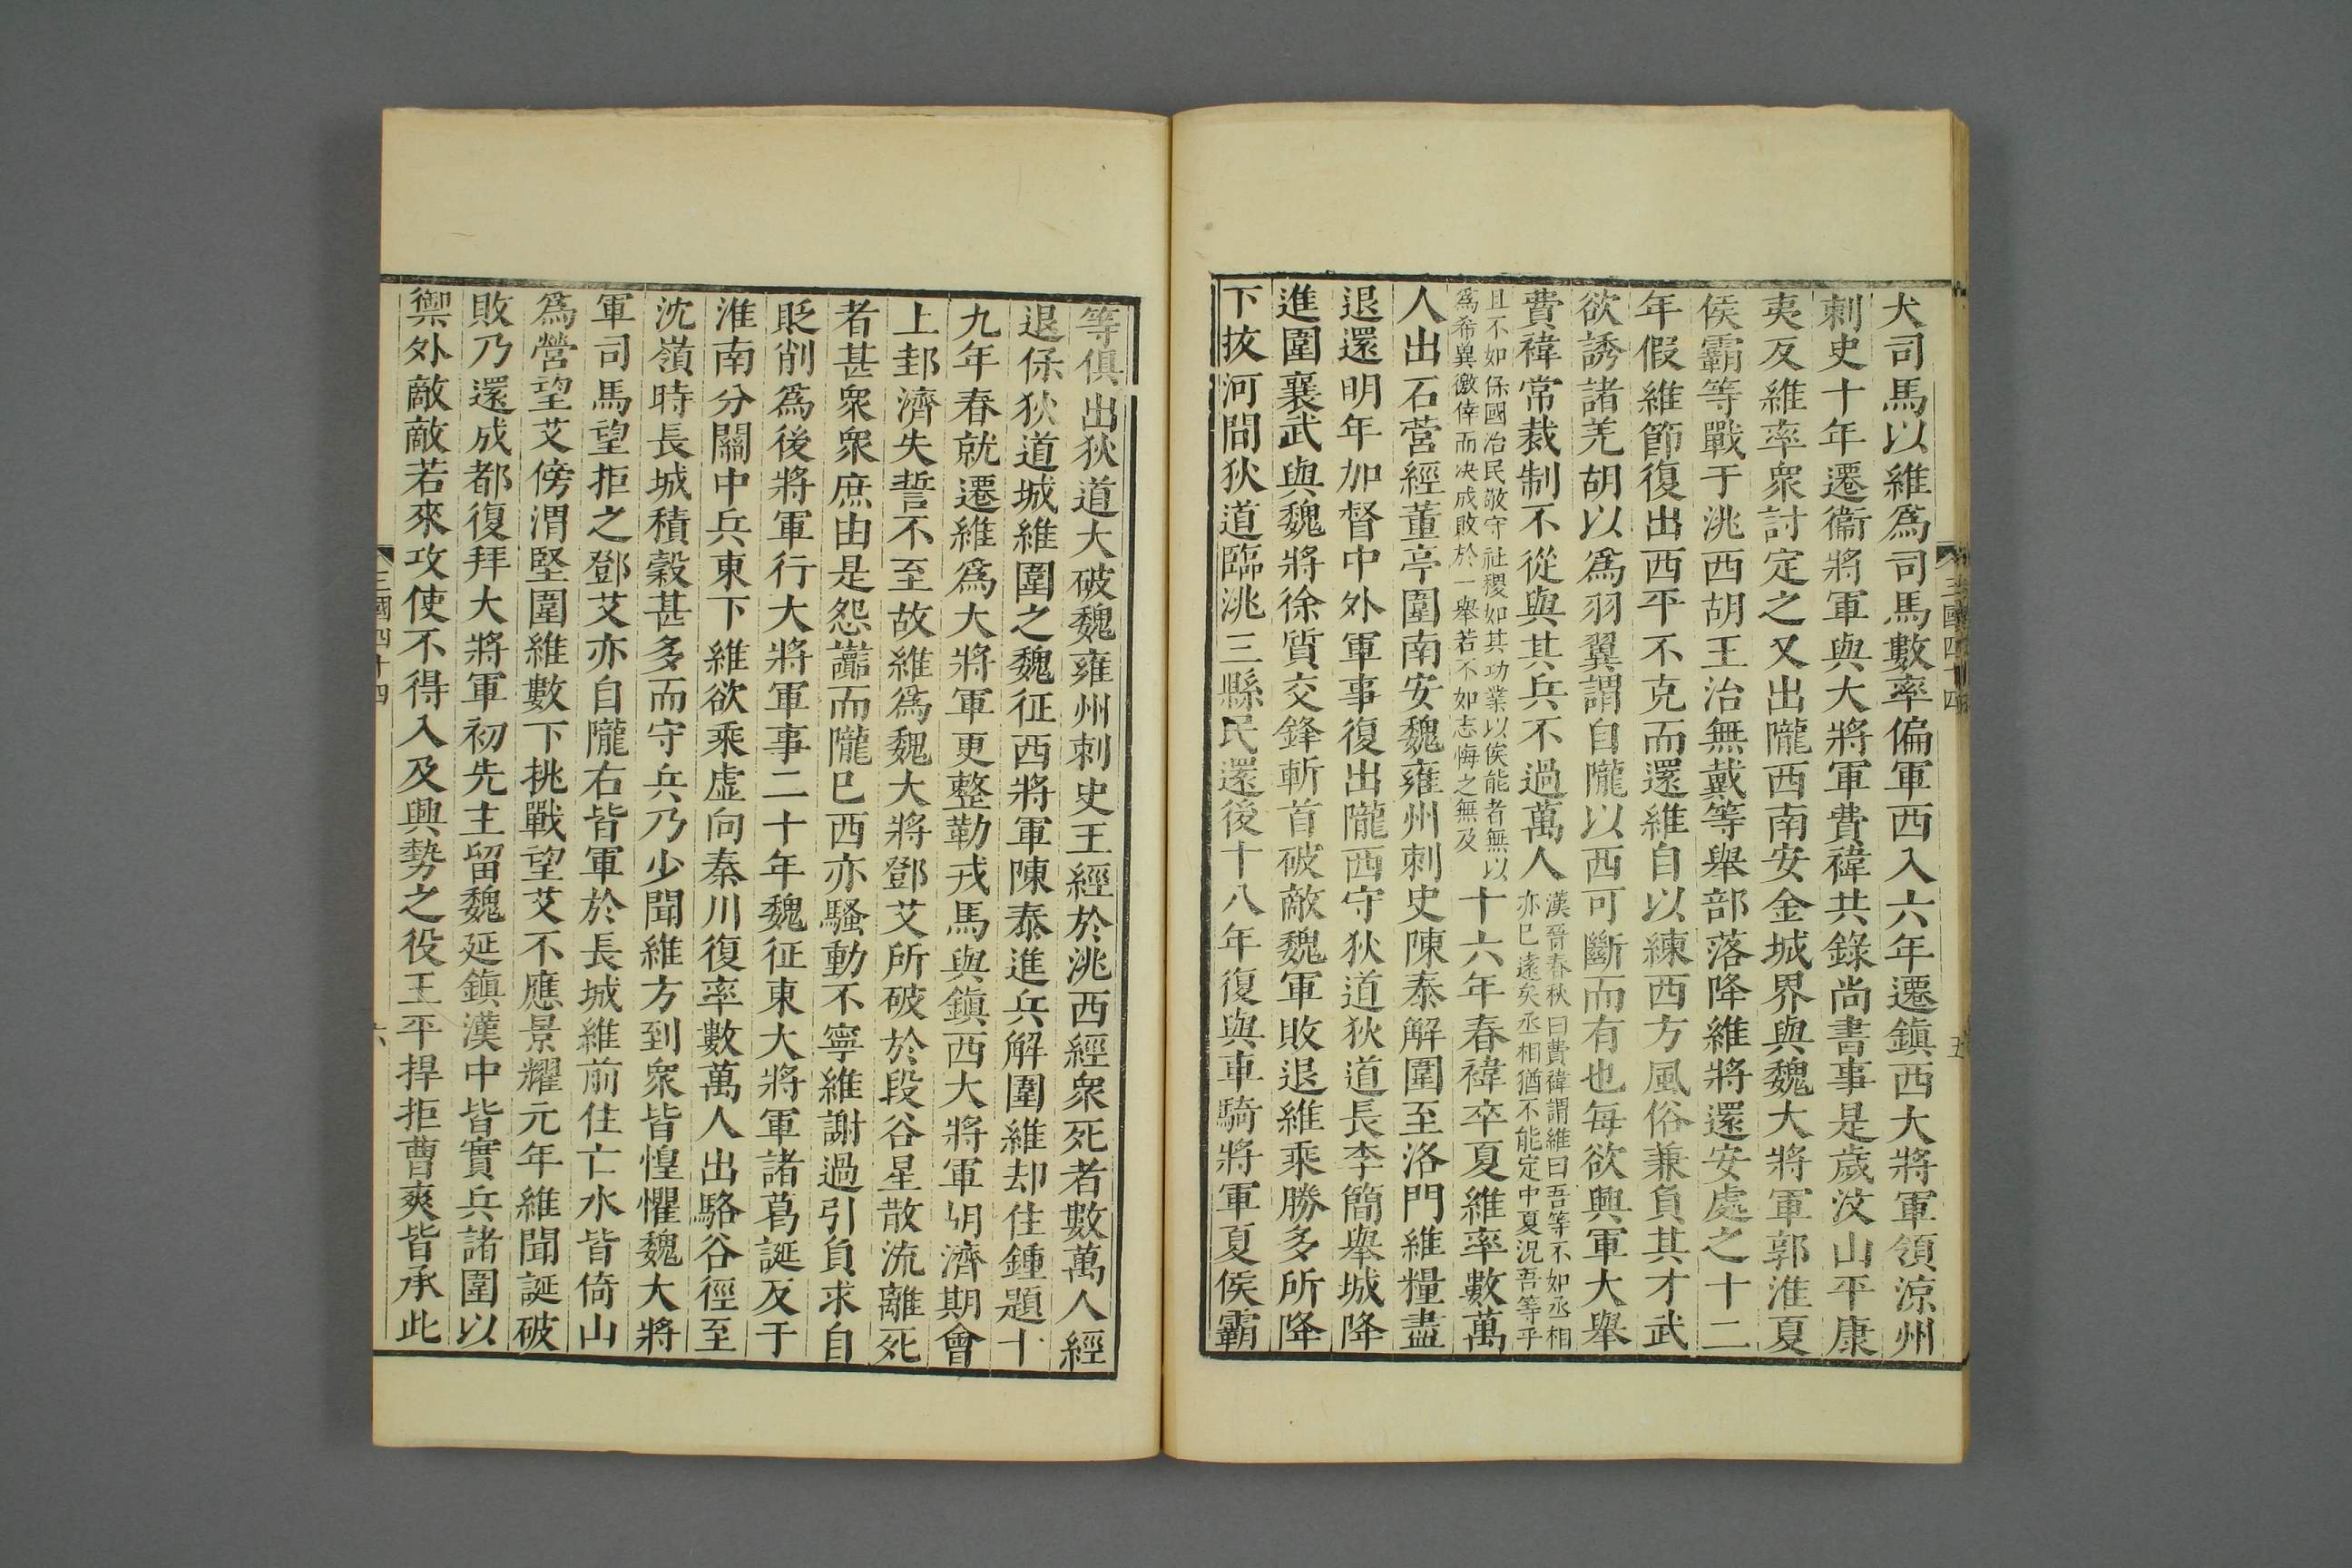 大司馬以維爲司馬數率偏軍西入六年遷鎮西大將軍領涼州
刺史十年遷衞將軍與大將軍費禕共錄尚書事是歲汶山平康
夷反維率衆討定之又出隴西南安金城界與魏大將軍郭淮夏
侯霸等戰于洮西胡王治無戴等舉部落降維將還安處之十二
年假維節復出西平不克而還維自以練西方風俗兼負其才武
欲誘諸羌胡以爲羽翼謂自隴以西可斷而有也每欲興軍大舉
費禕常裁制不從與其兵不過萬人
漢晉春秋曰費禕謂維曰吾等不如丞相
亦已遠矣丞相猶不能定中夏況吾等乎
且不如保國治民敬守社稷如其功業以俟能者無以
爲希冀徼倖而决成敗於一舉若不如志悔之無及
十六年春禕卒夏維率數萬
人出石營經董亭圍南安魏雍州刺史陳泰解圍至洛門維糧盡
退還明年加督中外軍事復出隴西守狄道狄道長李簡舉城降
進圍襄武與魏將徐質交鋒斬首破敵魏軍敗退維乘勝多所降
下拔河間狄道臨洮三縣民還後十八年復與車騎將軍夏侯霸
三國四十四
五
等俱出狄道大破魏雍州刺史王經於洮西經衆死者數萬人經
退保狄道城維圍之魏征西將軍陳泰進兵解圍維却住鍾題十
九年春就遷維爲大將軍更整勒戎馬與鎮西大將軍胡濟期會
上邽濟失誓不至故維爲魏大將鄧艾所破於段谷星散流離死
者甚衆衆庶由是怨讟而隴已西亦騷動不寧維謝過引負求自
貶削爲後將軍行大將軍事二十年魏征東大將軍諸葛誕反于
淮南分關中兵東下維欲乘虛向秦川復率數萬人出駱谷徑至
沈嶺時長城積穀甚多而守兵乃少聞維方到衆皆惶懼魏大將
軍司馬望拒之鄧艾亦自隴右皆軍於長城維前住亡水皆倚山
爲營望艾傍渭堅圍維數下挑戰望艾不應景耀元年維聞誕破
敗乃還成都復拜大將軍初先主留魏延鎮漢中皆實兵諸圍以
禦外敵敵若來攻使不得入及興勢之役王平捍拒曹爽皆承此
三國四十四
六